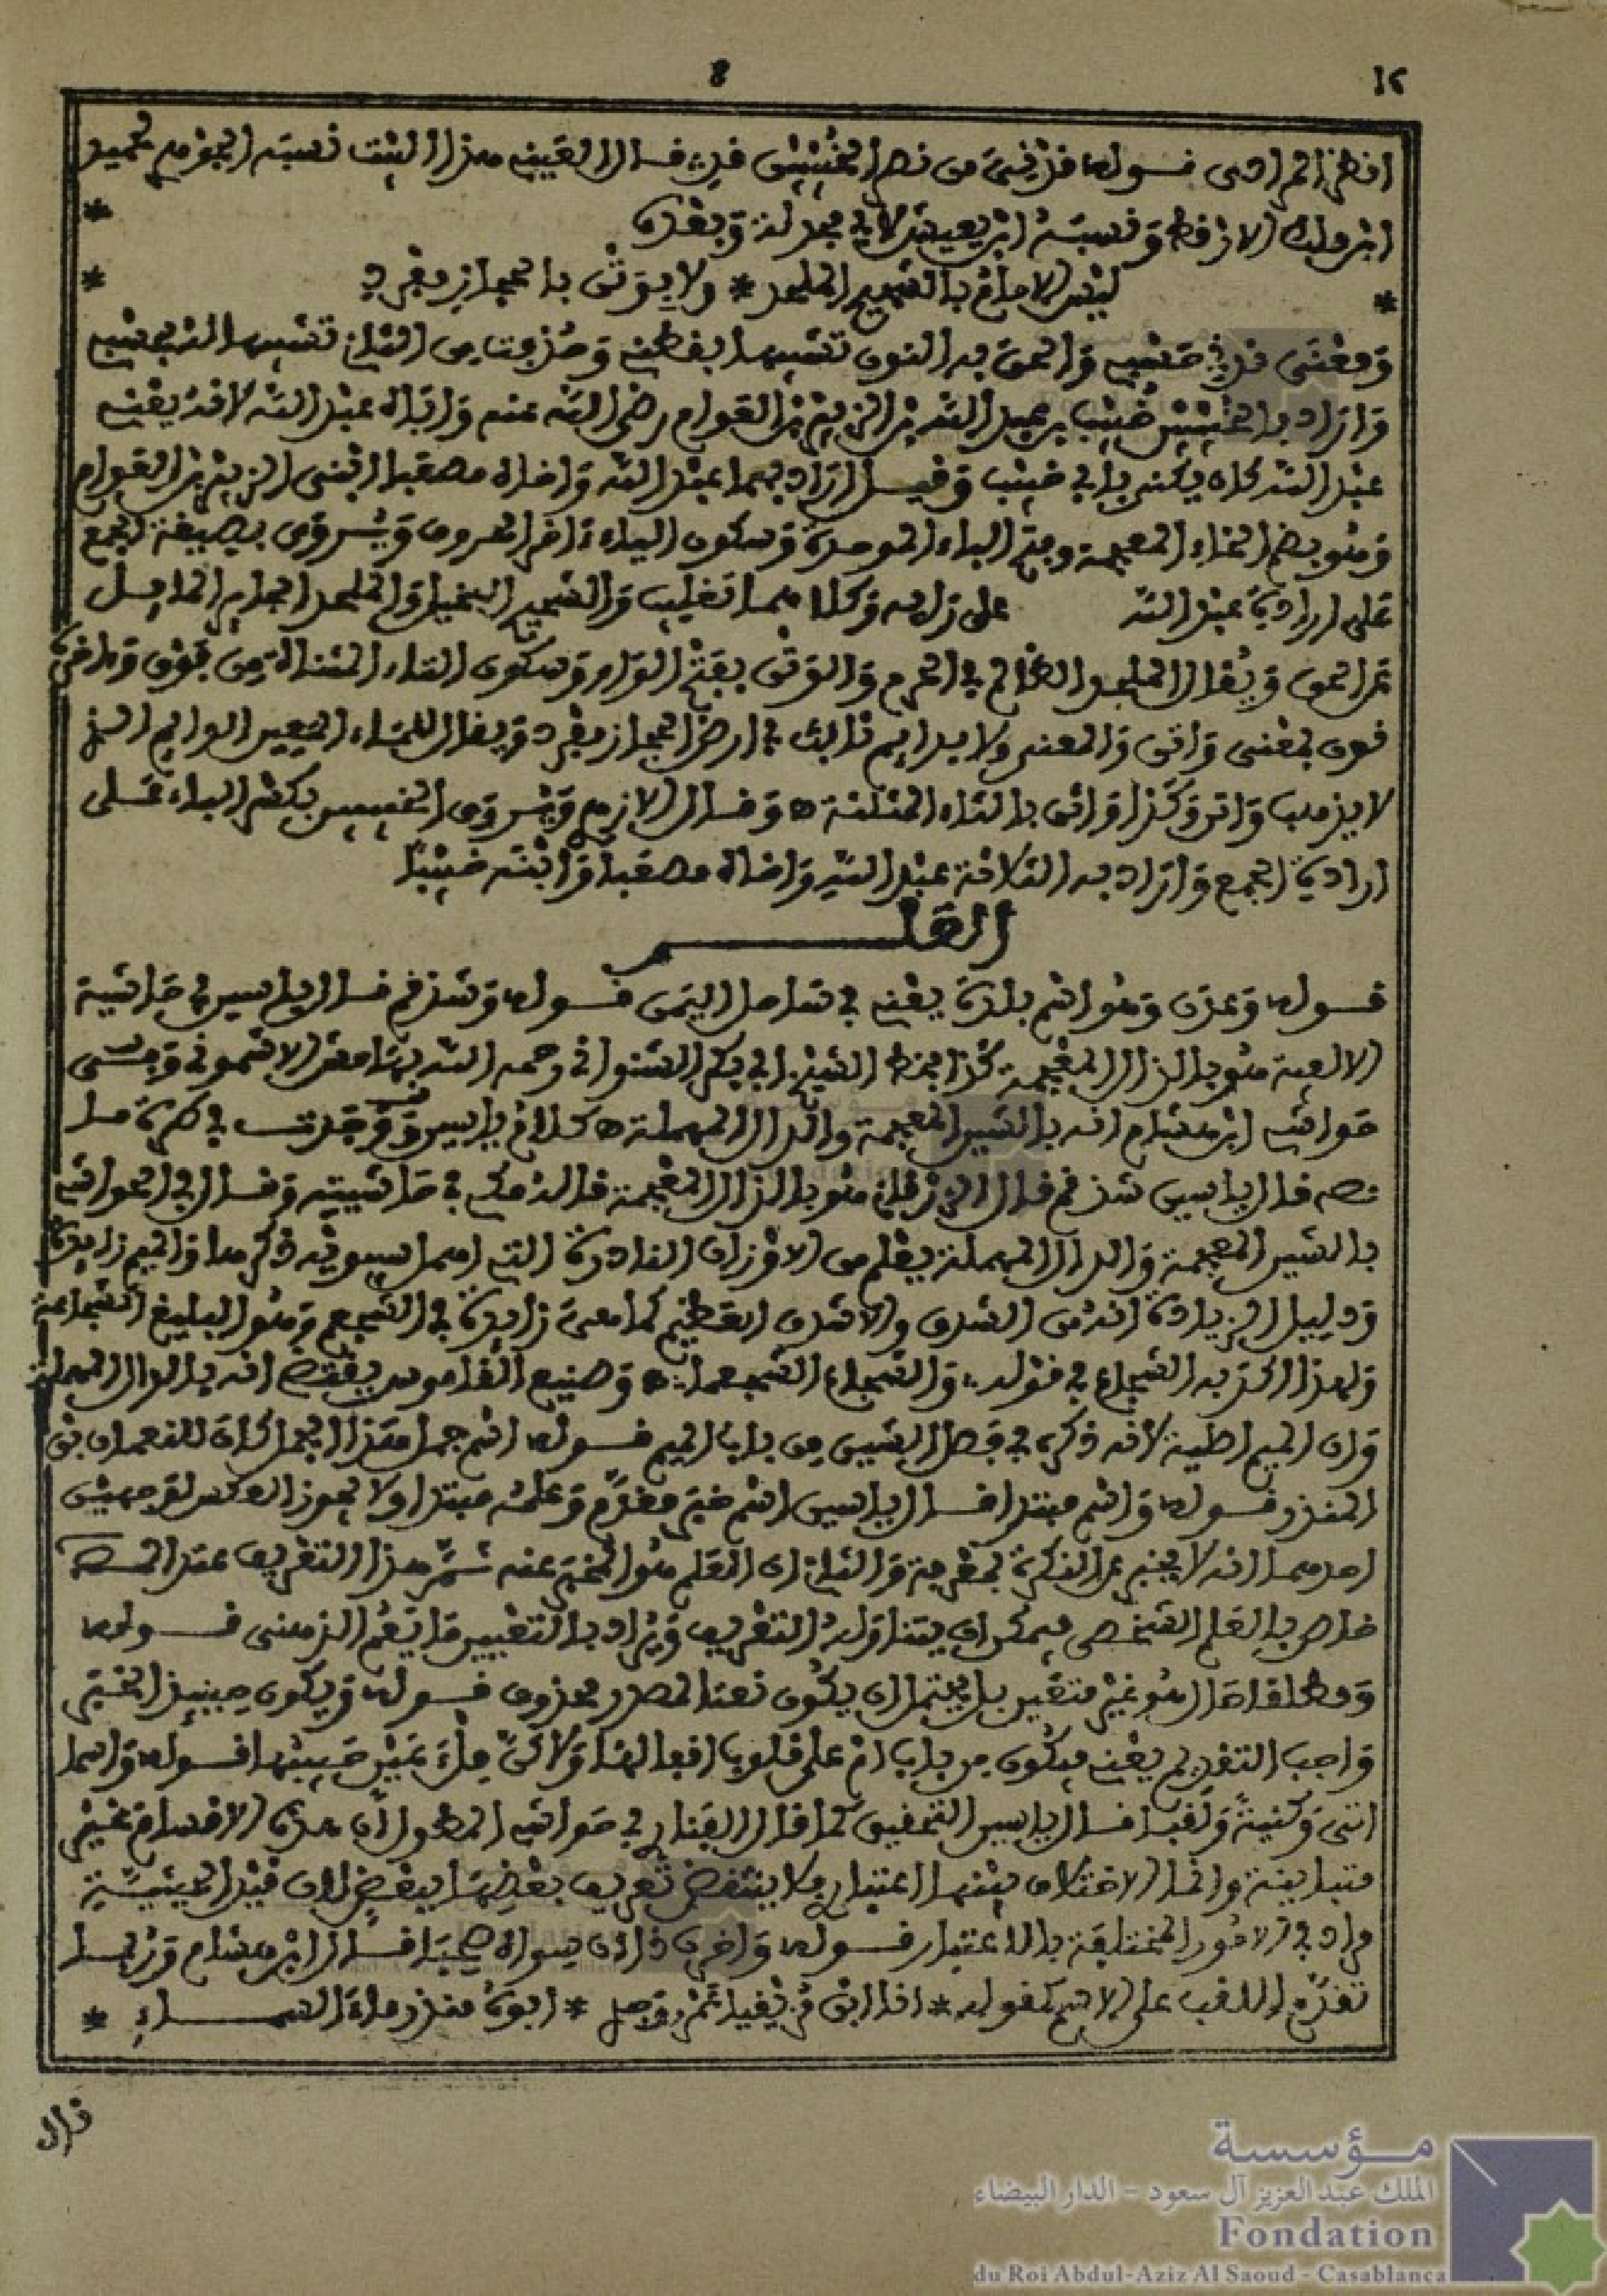 8
١٢
انظر المرادي قوله قدني من نصر الخبيبين قدي قال العيني هذا البيت نسبه الجوهري لحميد
ابن مالك الارقط ونسبه ابن يعيش لأبي بجدلة وبعده
* ليس الامام بالشحيح الملحد * ولا بوتن بالحجاز مفرد *
ومعنى قدي حسبي والحق به النون تشبيها بقطني وحذفت من الثاني تشبيها له بحسبي
واراد بالخبيبين خبيب بن عبد الله بن الزبير بن العوام رضي الله عنه واباه عبد الله لانه يعني
عبد الله كان يكنى بابي خبيب وقيل اراد بهما عبد الله واخاه مصعبا ابني الزبير بن العوام
وهو بضم الخاء المعجمة وفتح الباء الموحدة وسكون الياء ءاخر الحروف ويروى بصيغة الجمع
على ارادة عبد الله على رايه وكلاهما تغليب والشحيح البخيل والملحد الجاير المايل
عن الحق ويقال الملحد الظالم في الحرم والوتن بفتح الواو وسكون التاء المثناة من فوق وفاخره
نون بمعنى واتن والمعنى ولا بدايم ثابت في ارض الحجاز مفرد ويقال للماء المعين الدايم الذي
لا يذهب واتن وكذا واثن بالثاء المثلثة ه وقال الازهري ويروى الخبيبين بكسر الباء على
ارادة الجمع واراد به الثلاثة عبد الله واخاه مصعبا وابنه خبيبا
العلم
قوله وعدن وهو اسم بلدة يعني في ساحل اليمن قوله وشذقم قال ياسين في حاشية
الالفية هو بالذال المعجمة كذا بخط الشيخ ابي بكر الشنواني رحمه الله بهامش الاشموني وفي
حواشي ابن هشام انه بالشين المعجمة والدال المهملة ه كلام ياسين ووجدت في طرة ما
نصه قال ياسين شذقم قال الزرقاني هو بالذال المعجمة قاله في حاشيته وقال في الحواشي
بالشين المعجمة والدال المهملة يعلم من الاوزان النادرة التي اهمل سيبويه ذكرها والميم زايدة
ودليل الزيادة انه من الشدق والاشدق العظيم كما هي زايدة في الشجعم وهو البليغ الشجاعة
ولهذا اكد به الشجاع في قوله والشجاع الشجعما ه وصنيع القاموس يقتضي انه بالدال المهملة
وان الميم اصلية لأنه ذكره في فصل الشين من باب الميم قوله اسم جمل هذا الجمل كان للنعمان بن
المنذر قوله واسم مبتدا قال ياسين اسم خبر مقدم وعلمه مبتدا ولا يجوز العكس لوجهين
احدهما انه لا يخبر عن النكرة بمعرفة والثاني ان العلم هو المخبر عنه ثم هذا التعريف عند
خاص بالعلم الشخصي فيمكن ان يتناوله التعريف ويراد بالتعيين ما يعم الذهني قوله
ومطلقا حال هو غير متعين بل يحتمل ان يكون نعتا لمصدر محذوف قوله ويكون حينئذ الخبر
واجب التقديم يعني فيكون من باب ام على قلوب اقفالها ولاكن ملء عين حبيبها قوله واسما
اتى وكنية ولقبا قال ياسين التحقيق كما قال الفنار في حواشي المطول ان هذه الاقسام غير
متباينة وانما الاختلاف بينها اعتباري فلا ينتقض تعريف بعضها ببعض لان قيد الحيثية
مراد في الامور المختلفة بالاعتبار قوله واخرن ذا ان سواه صحبا قال ابن هشام وربما
تقدم اللقب على الاسم كقوله * انا ابن مزيقيا عمرو وجدي * ابوه منذر ماء السماء *
قال
مؤسسة
الملك عبد العزيز آل سعود - الدار البيضاء
Fondation
du Roi Abdul-Aziz Al Saoud - Casablanca